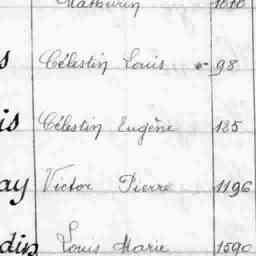 Mathurin 1010
s Célestin Louis 98
is Célestin Eugène 185
ay Victor Pierre 1196
din Louis Marie 1590